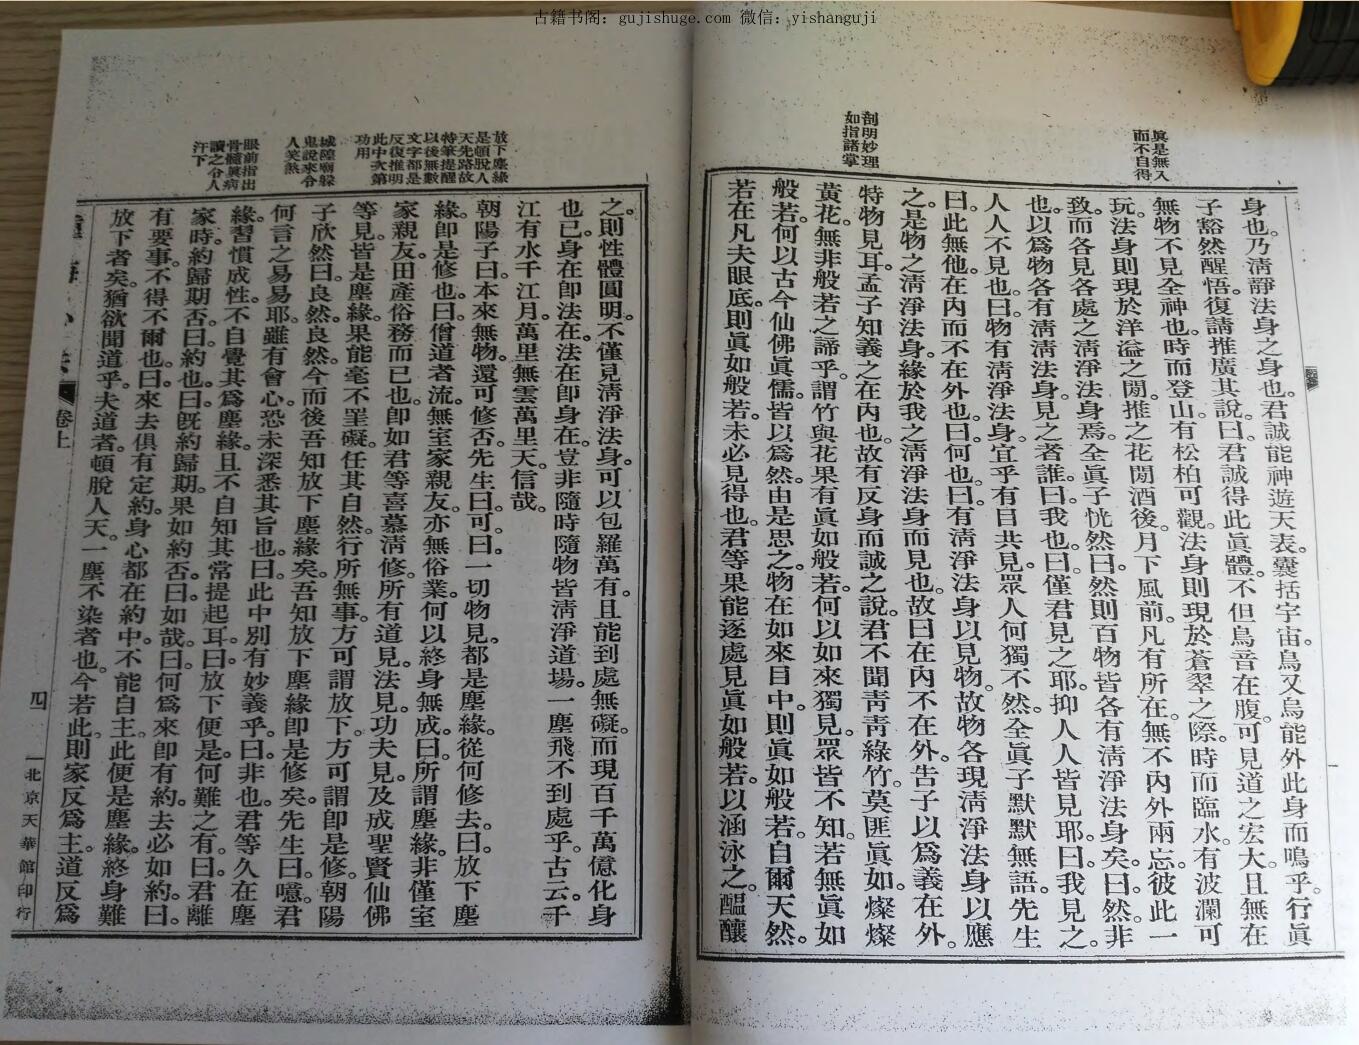 古籍书阁：gujishuge.com 微信：yishanguji
眞是無入
而不自得
剖明妙理
如指諸掌
身也。乃清靜法身之身也。君誠能神遊天表。囊括宇宙。鳥又烏能外此身而鳴乎。行眞
子豁然醒悟。復請推廣其說。曰。君誠得此眞體。不但鳥音在腹。可見道之宏大。且無在
無物不見全神也。時而登山。有松柏可觀。法身則現於蒼翠之際。時而臨水。有波瀾可
玩。法身則現於洋溢之閒。推之花閒酒後。月下風前。凡有所在。無不內外兩忘。彼此一
致。而各見各處之清淨法身焉。全眞子恍然曰。然則百物皆各有清淨法身矣。曰。然。非
也。以爲物各有清淨法身。見之者誰。曰。我也。曰。僅君見之耶。抑人人皆見耶。曰。我見之。
人人不見也。曰。物有清淨法身。宜乎有目共見。眾人何獨不然。全眞子默默無語。先生
曰。此無他。在內而不在外也。曰。何也。曰。有清淨法身以見物。故物各現清淨法身以應
之。是物之清淨法身。緣於我之清淨法身而見也。故曰在內不在外。告子以爲義在外。
特物見耳。孟子知義之在內也。故有反身而誠之說。君不聞靑靑綠竹。莫匪眞如。燦燦
黃花。無非般若之諦乎。謂竹與花果有眞如般若。何以如來獨見。眾皆不知。若無眞如
般若。何以古今仙佛眞儒。皆以爲然。由是思之。物在如來目中。則眞如般若。自爾天然。
若在凡夫眼底。則眞如般若。未必見得也。君等果能逐處見眞如般若。以涵泳之。醞釀
放下塵緣
是頓脫人
天先路故
特筆提醒
以後無數
文字都是
反復推明
此中次第
功用
城隍廟躲
鬼說來令
人笑煞
眼前指出
骨髓眞病
讀之令人
汗下
之。則性體圓明。不僅見清淨法身。可以包羅萬有。且能到處無礙。而現百千萬億化身
也。已身在卽法在。法在卽身在。豈非隨時隨物皆清淨道場。一塵飛不到處乎。古云。千
江有水千江月。萬里無雲萬里天。信哉。
朝陽子曰。本來無物。還可修否。先生曰。可。曰。一切物見。都是塵緣。從何修去。曰。放下塵
緣。卽是修也。曰。僧道者流。無室家親友。亦無俗業。何以終身無成。曰。所謂塵緣。非僅室
家親友。田產俗務而已也。卽如君等喜慕清修。所有道見。法見。功夫見。及成聖賢仙佛
等見。皆是塵緣。果能毫不罣礙。任其自然。行所無事。方可謂放下。方可謂卽是修。朝陽
子欣然曰。良然良然。今而後吾知放下塵緣矣。吾知放下塵緣卽是修矣。先生曰。噫。君
何言之易易耶。雖有會心。恐未深悉其旨也。曰。此中別有妙義乎。曰。非也。君等久在塵
緣。習慣成性。不自覺其爲塵緣。且不自知其常提起耳。曰。放下便是。何難之有。曰。君離
家時。約歸期否。曰。約也。曰。旣約歸期。果如約否。曰。如哉。曰。何爲來卽有約。去必如約。曰。
有要事。不得不爾也。曰。來去俱有定約。身心都在約中。不能自主。此便是塵緣。終身難
放下者矣。猶欲聞道乎。夫道者。頓脫人天。一塵不染者也。今若此。則家反爲主。道反爲
卷上
四
北京天華館印行